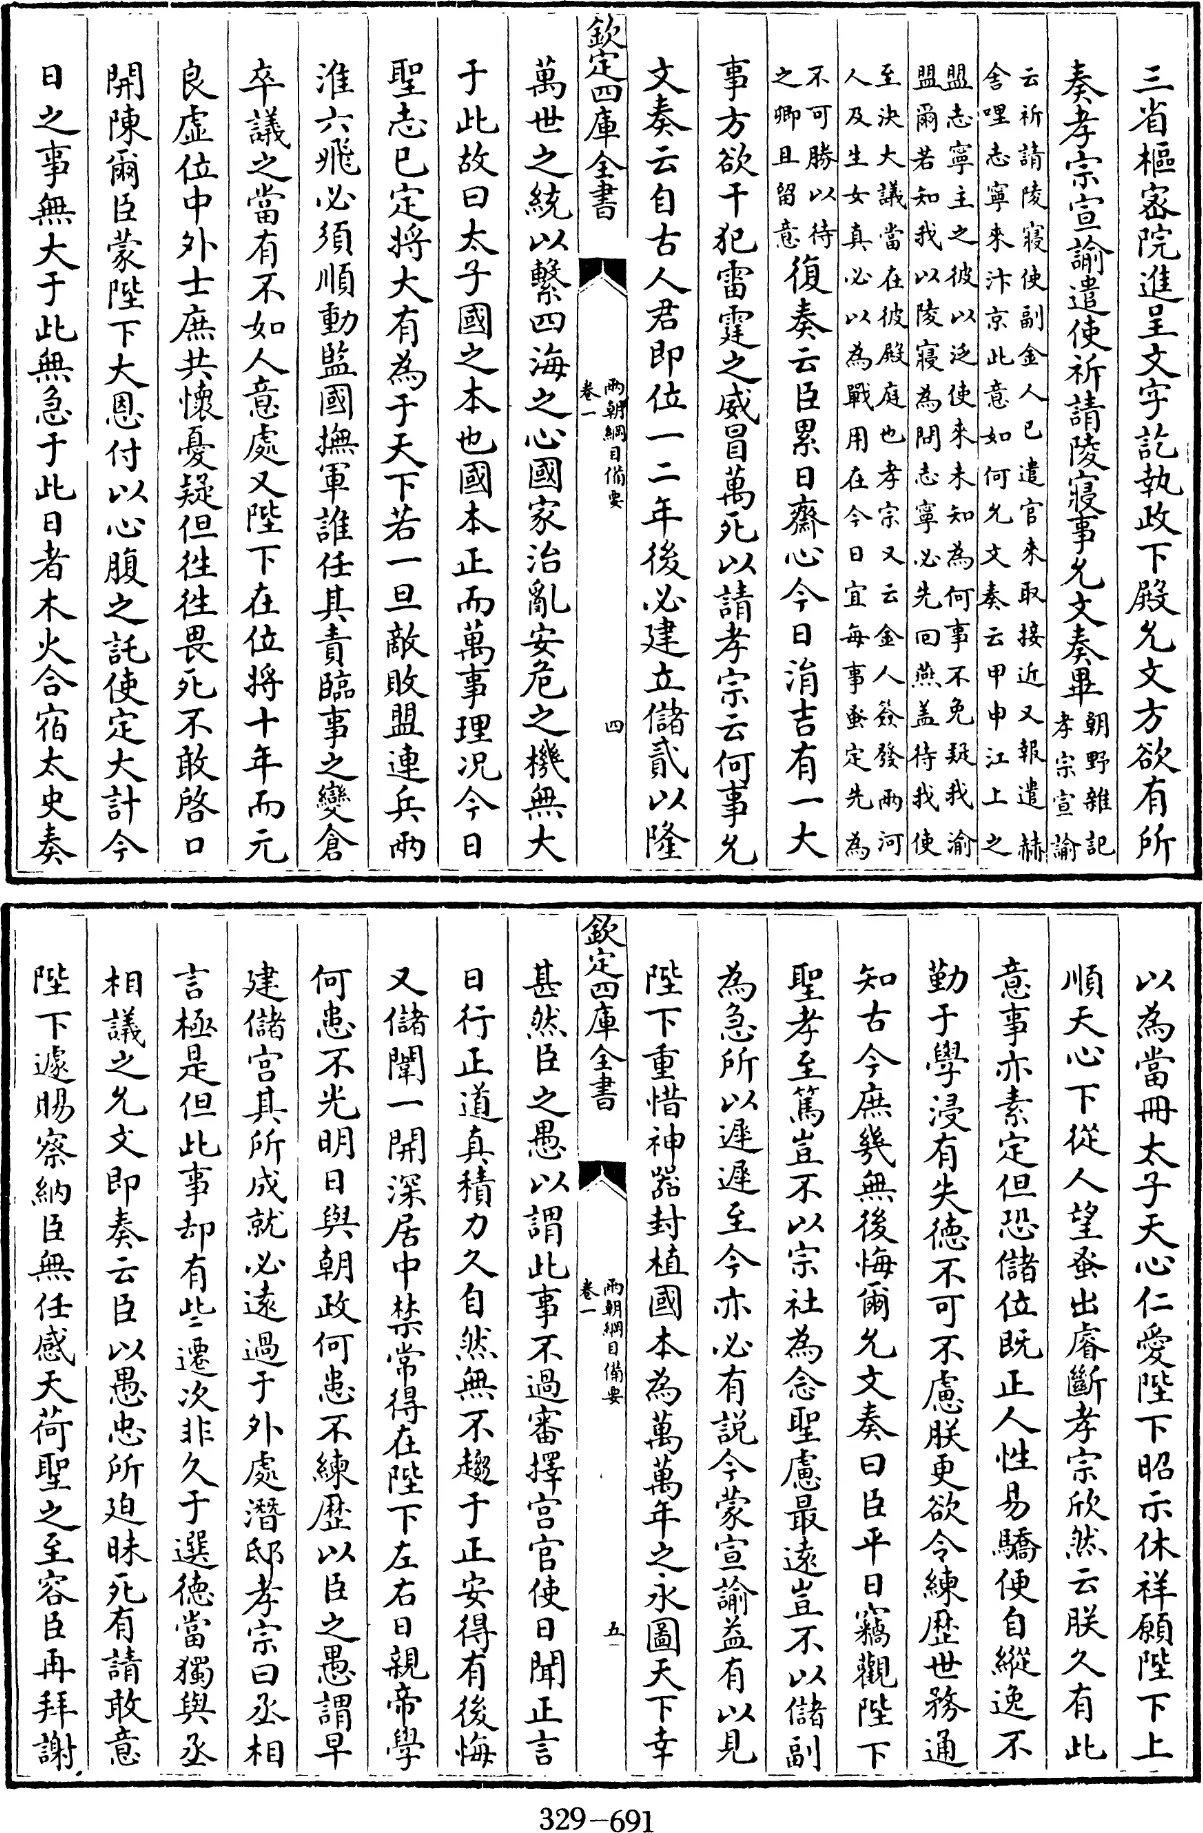 三省樞密院進呈文字訖執政下殿允文方欲有所
奏孝宗宣諭遣使祈請陵寢事允文奏畢朝野雜記
孝宗宣諭
云祈請陵寢使副金人已遣官來取接近又報遣赫
舍哩志寧來汴京此意如何允文奏云甲申江上之
盟志寧主之彼以泛使來未知為何事不免疑我渝
盟爾若知我以陵寢為問志寧必先回燕盖待我使
至決大議當在彼殿庭也孝宗又云金人簽發兩河
人及生女真必以為戰用在今日宜每事蚤定先為
不可勝以待
之卿且留意復奏云臣累日齋心今日涓吉有一大
事方欲干犯雷霆之威冒萬死以請孝宗云何事允
文奏云自古人君即位一二年後必建立儲貳以隆
欽定四庫全書
兩朝綱目備要
卷一
四
萬世之統以繫四海之心國家治亂安危之機無大
于此故曰太子國之本也國本正而萬事理況今日
聖志已定將大有為于天下若一旦敵敗盟連兵兩
淮六飛必須順動監國撫軍誰任其責臨事之變倉
卒議之當有不如人意處又陛下在位將十年而元
良虛位中外士庶共懷憂疑但徃徃畏死不敢啓口
開陳爾臣蒙陛下大恩付以心腹之託使定大計今
日之事無大于此無急于此日者木火合宿太史奏
以為當冊太子天心仁愛陛下昭示休祥願陛下上
順天心下從人望蚤出睿斷孝宗欣然云朕久有此
意事亦素定但恐儲位既正人性易驕便自縱逸不
勤于學浸有失德不可不慮朕更欲令練歷世務通
知古今庶幾無後悔爾允文奏曰臣平日竊觀陛下
聖孝至篤豈不以宗社為念聖慮最遠豈不以儲副
為急所以遲遲至今亦必有説今蒙宣諭益有以見
陛下重惜神器封植國本為萬萬年之永圖天下幸
欽定四庫全書
兩朝綱目備要
卷一
五
甚然臣之愚以謂此事不過審擇宫官使日聞正言
日行正道真積力久自然無不趨于正安得有後悔
又儲闈一開深居中禁常得在陛下左右日親帝學
何患不光明日與朝政何患不練歷以臣之愚謂早
建儲宫其所成就必遠過于外處潛邸孝宗曰丞相
言極是但此事却有些遷次非久于選德當獨與丞
相議之允文即奏云臣以愚忠所迫昧死有請敢意
陛下遽賜察納臣無任感天荷聖之至容臣再拜謝
329-691